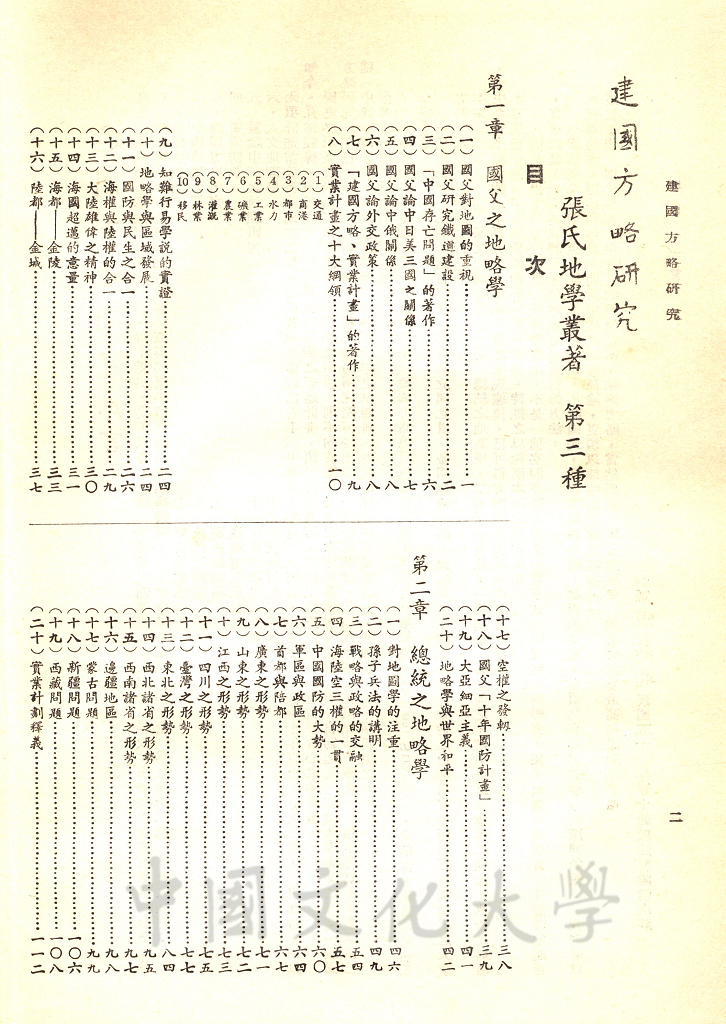 建國方略研究
二
建國方略研究
張氏地學叢著　第三種
目　次
第一章　國父之地略學
（一）　國父對地圖的重視……一
（二）　國父研究鐵道建設……二
（三）　「中國存亡問題」的著作……六
（四）　國父論中日美三國之關係……七
（五）　國父論中俄關係……八
（六）　國父論外交政策……八
（七）　「建國方略、實業計畫」的著作……九
（八）　實業計畫之十大綱領……一〇
（1）交通
（2）商港
（3）都市
（4）水力
（5）工業
（6）礦業
（7）農業
（8）灌溉
（9）林業
（10）移民
（九）　知難行易學說的實證……二四
（十）　地略學與區域發展……二四
（十一）　國防與民生之合一……二六
（十二）　海權與陸權的合一……二九
（十三）　大陸雄偉之精神……三〇
（十四）　海國超邁的意量……三一
（十五）　海都——金陵……三三
（十六）　陸都——金城……三七
（十七）　空權之發軔……三八
（十八）　國父「十年國防計畫」……三九
（十九）　大亞細亞主義……四一
（二十）　地略學與世界和平……四二
第二章　總統之地略學
（一）　對地圖學的注重……四六
（二）　孫子兵法的講明……四九
（三）　戰略與政略的交融……五四
（四）　海陸空三權的一貫……五七
（五）　中國國防的大勢……六〇
（六）　軍區與政區……六四
（七）　首都與陪都……六七
（八）　廣東之形勢……七一
（九）　山東之形勢……七二
（十）　江西之形勢……七三
（十一）　四川之形勢……七五
（十二）　臺灣之形勢……七七
（十三）　東北之形勢……八四
（十四）　西北諸省之形勢……九五
（十五）　西南諸省之形勢……九七
（十六）　邊疆地區……九八
（十七）　蒙古問題……九九
（十八）　新疆問題……一〇六
（十九）　西藏問題……一〇八
（二十）　實業計劃釋義……一一二
中國文化大學